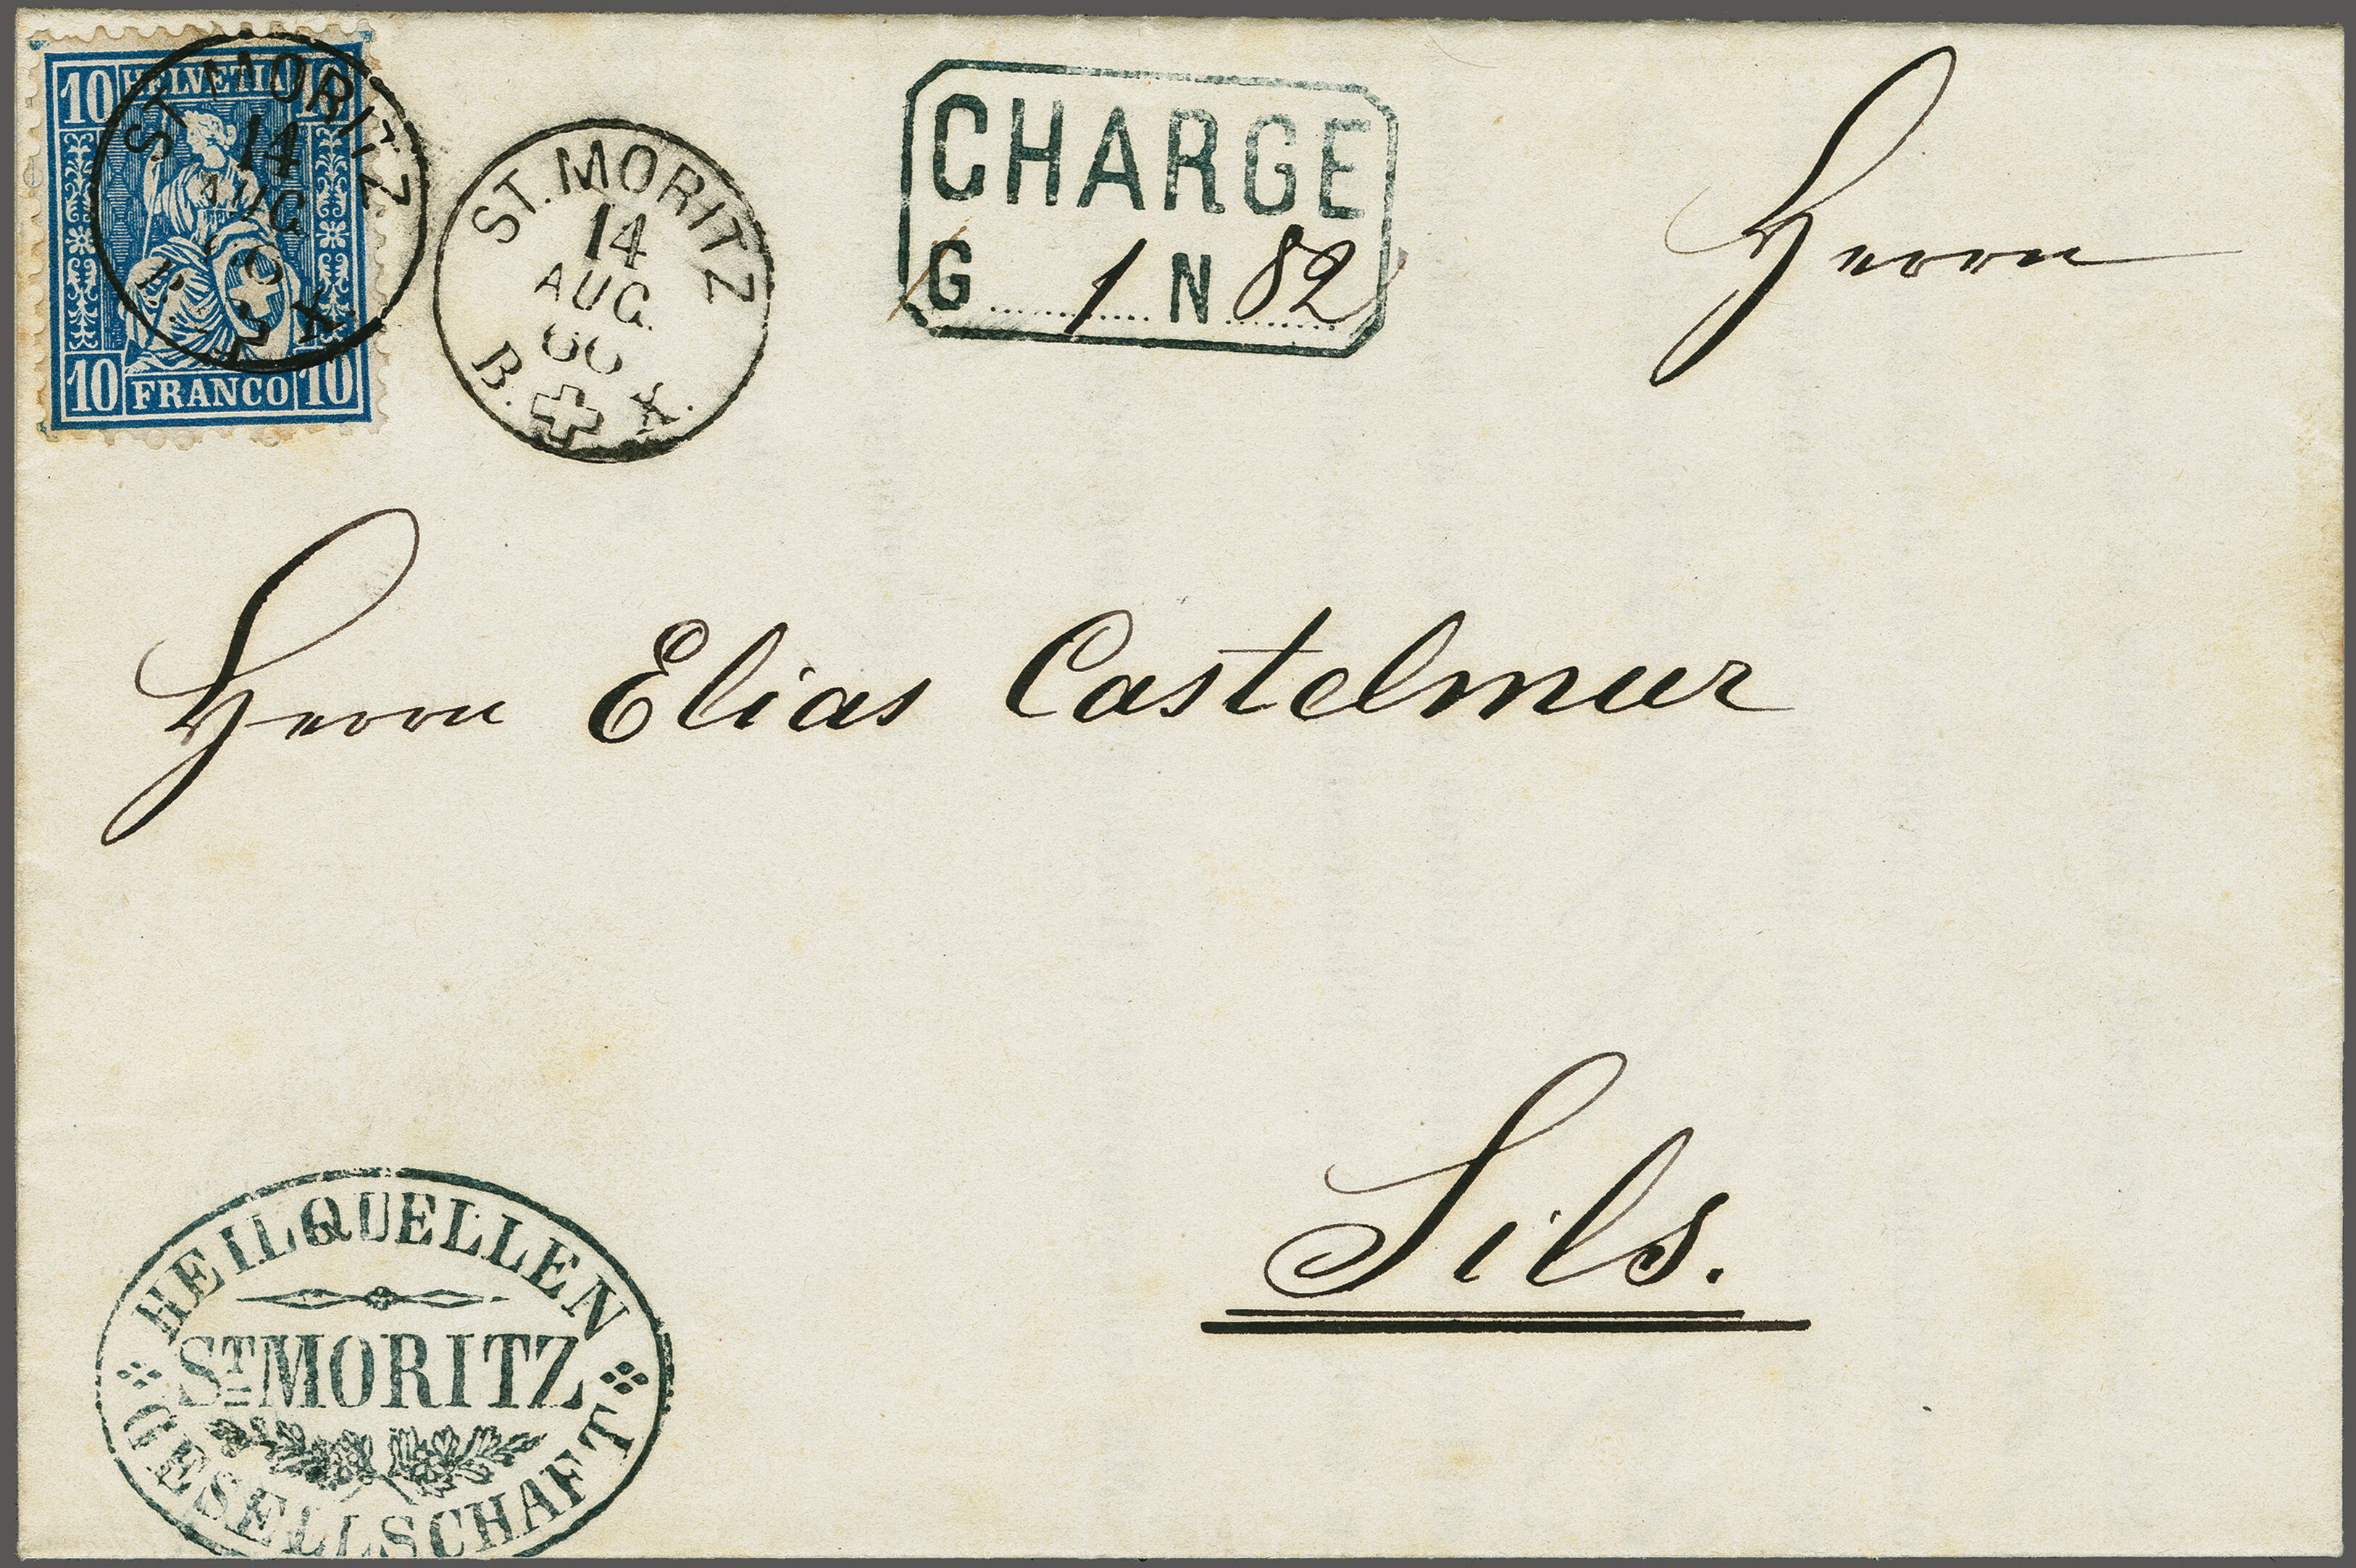 10 HELVETIA 10
10 FRANCO 10
ST. MORITZ
14
AUG
B. X
ST. MORITZ
14
AUG.
66
B. X.
CHARGE
G 1 N 82
Herrn
Herrn Elias Castelmur
Sils.
HEILQUELLEN
ST MORITZ
GESELLSCHAFT